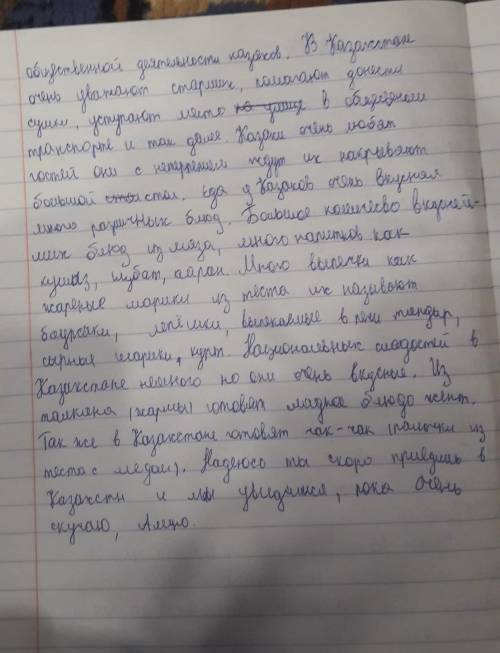 общественной деятельности казахов. В Казахстане
очень уважают старших, помогают донести
сумки, уступают место на улице в общественном
транспорте и так далее. Казахи очень любят
гостей они с нетерпением ждут их накрывают
большой стол. Еда у Казахов очень вкусная
много различных блюд. Большое количесво вкусней-
ших блюд из мяза, много напитков как
кумыз, шубат, айран. Много выпечки как
жареные шарики из теста их называют
баурсаки, лепёшки, выпекаемые в печи тандыр,
сырные шарики, курт. Национальных сладостей в
Казахстане немного но они очень вкусные. Из
талкана (жармы) готовят сладкое блюдо жент.
Так же в Казахстане готовят чак-чак (палочки из
теста с медом). Надеюсь ты скоро приедешь в
Казахстн и мы увидимся, пока очень
скучаю,